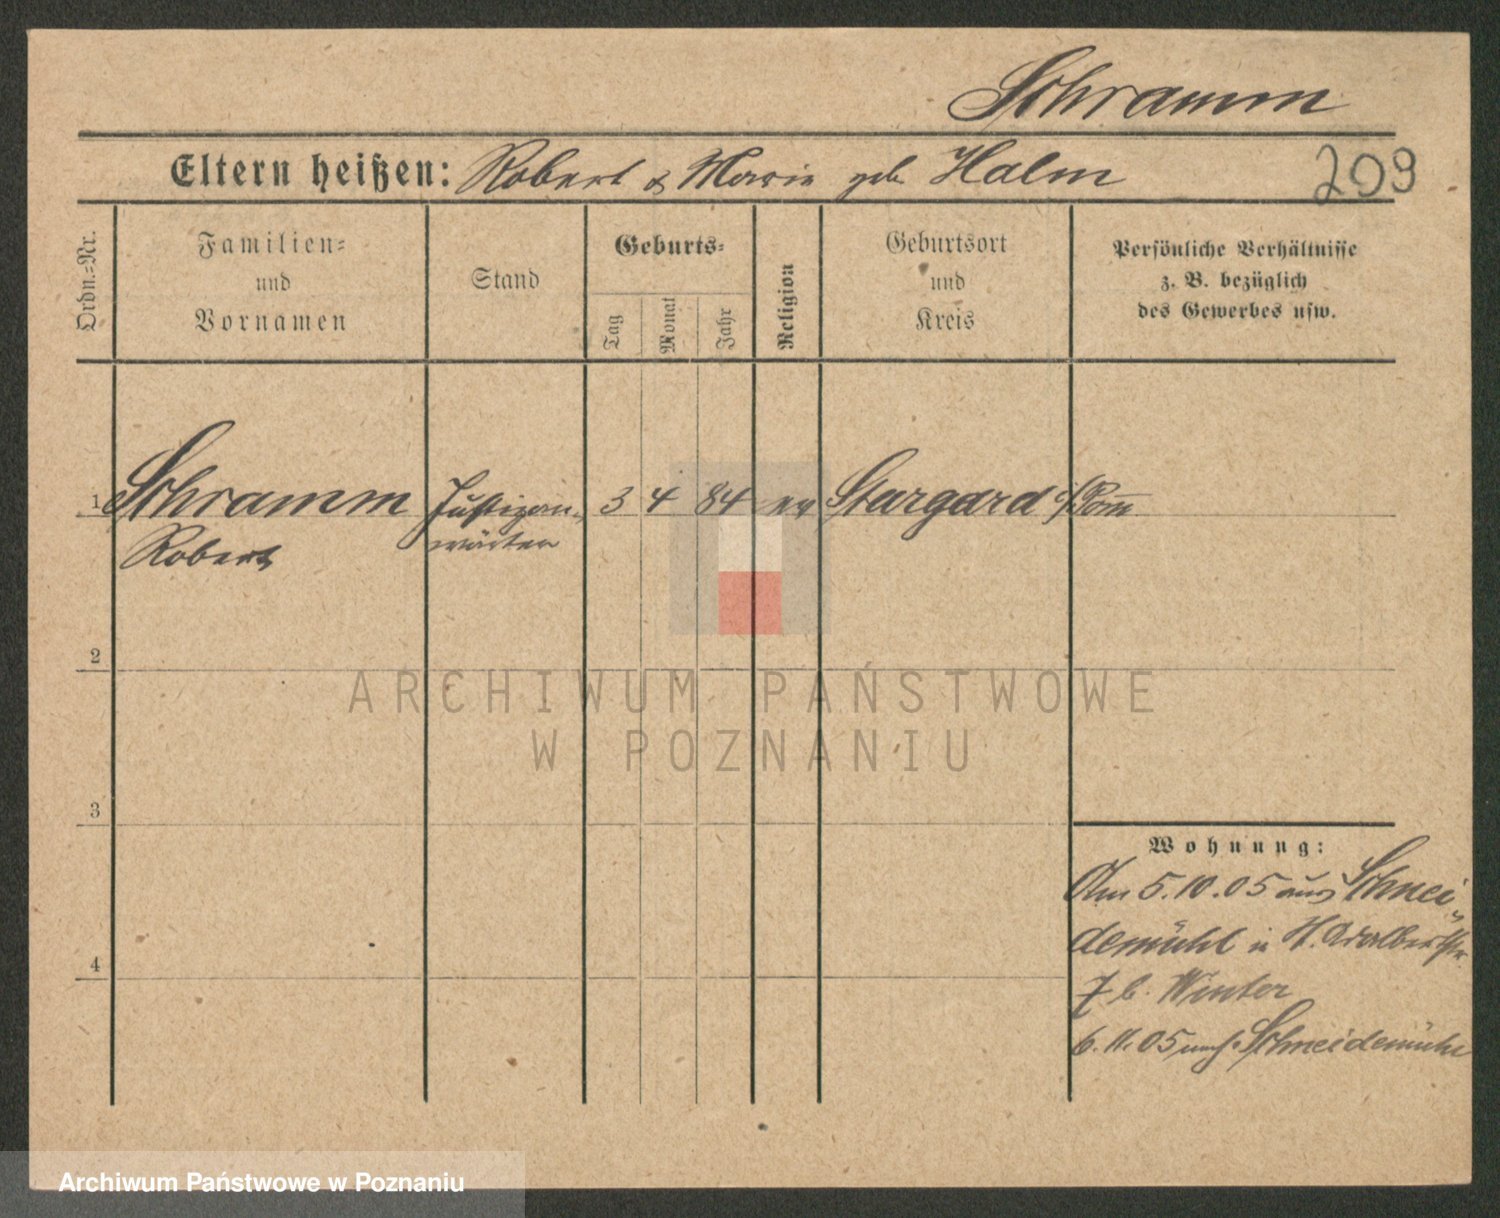 Schramm
Eltern heißen: Robert & Marie geb. Halm
209
Ordn.=Nr.
Familien=
und
Vornamen
Stand
Geburts=
Tag
Monat
Jahr
Religion
Geburtsort
und
Kreis
Persönliche Verhältnisse
z. B. bezüglich
des Gewerbes usw.
1 Schramm Justizan- 3 4 84 ev Stargard i/Pom
Robert wärter
2
3
4
Wohnung:
Am 5.10.05 aus Schnei
demühl in St. Adalbertstr
7 b. Winter
6.11.05 nach Schneidemühl
ARCHIWUM PAŃSTWOWE
W POZNANIU
Archiwum Państwowe w Poznaniu